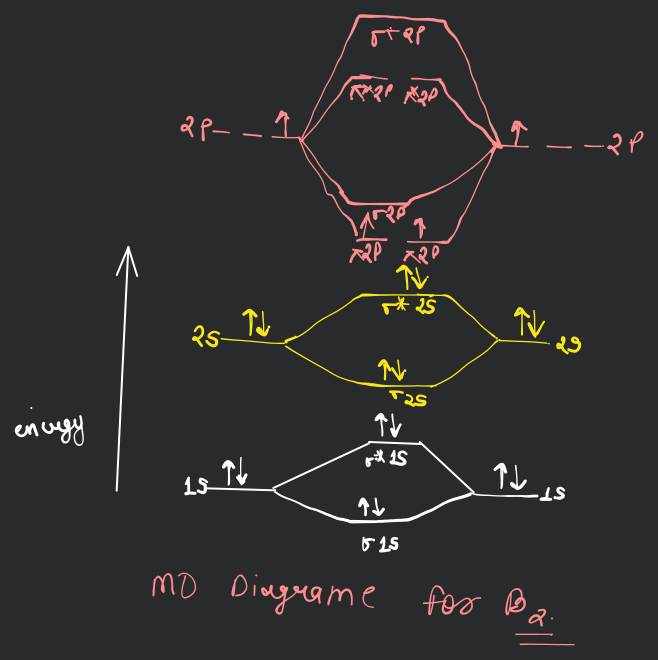 σ* 2P
π*2P π*2P
2P 2P
σ2P
π2P π2P
σ* 2S
2S 2S
σ2S
energy
σ* 1S
1S 1S
σ 1S
MO Diagrame for B2.